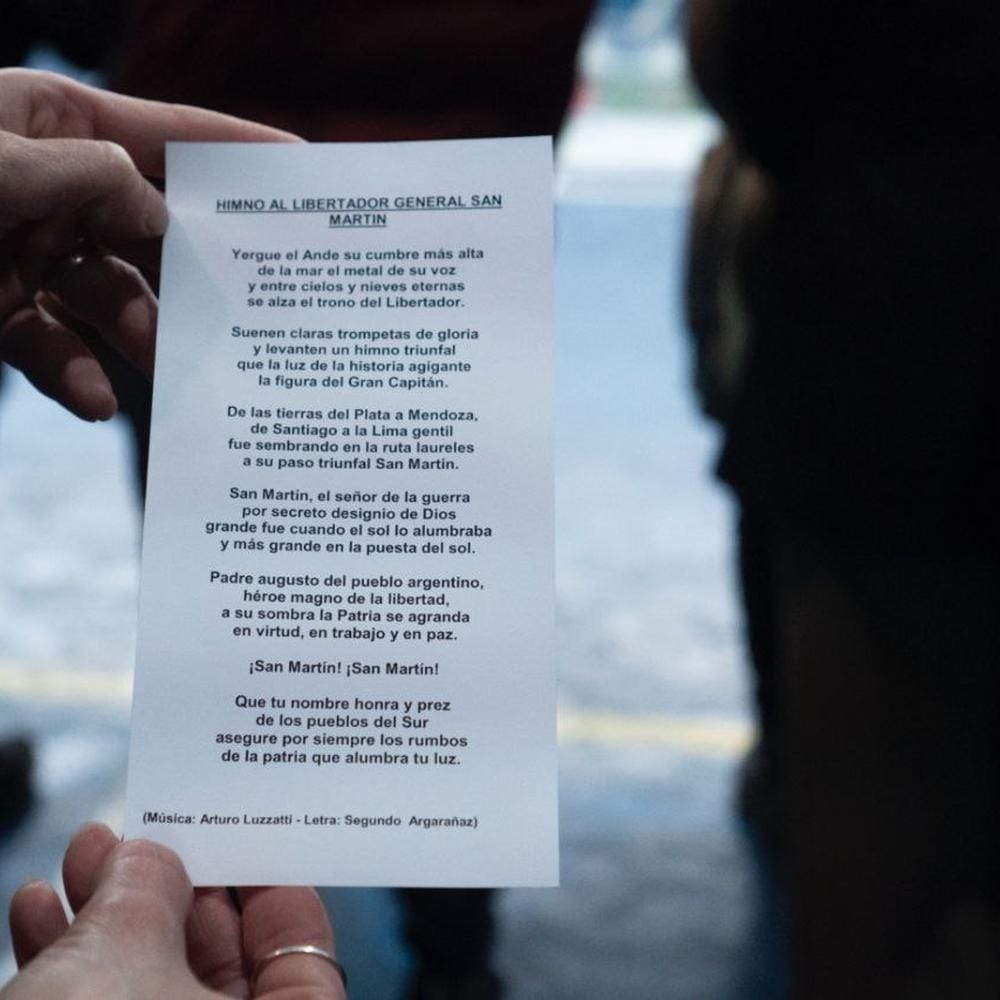 HIMNO AL LIBERTADOR GENERAL SAN
MARTIN
Yergue el Ande su cumbre más alta
de la mar el metal de su voz
y entre cielos y nieves eternas
se alza el trono del Libertador.
Suenen claras trompetas de gloria
y levanten un himno triunfal
que la luz de la historia agigante
la figura del Gran Capitán.
De las tierras del Plata a Mendoza,
de Santiago a la Lima gentil
fue sembrando en la ruta laureles
a su paso triunfal San Martín.
San Martín, el señor de la guerra
por secreto designio de Dios
grande fue cuando el sol lo alumbraba
y más grande en la puesta del sol.
Padre augusto del pueblo argentino,
héroe magno de la libertad,
a su sombra la Patria se agranda
en virtud, en trabajo y en paz.
¡San Martín! ¡San Martín!
Que tu nombre honra y prez
de los pueblos del Sur
asegure por siempre los rumbos
de la patria que alumbra tu luz.
(Música: Arturo Luzzatti - Letra: Segundo Argarañaz)